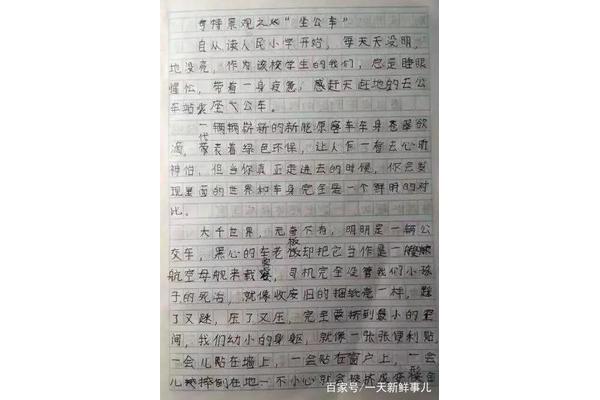 奇特景观之《"坐公车"
自从读人民小学开始，每天天没明，
地没亮，作为该校学生的我们，总是睡眼
惺忪，带着一身疲惫，感赶天赶地的去公
车站坐公车。
一辆辆崭新的新能源客车车身
滴，代表着绿色环保，让人乍一看去心旷
神怡，但当你真正走进去的时候，你会发
现里面的世界和车身完全是一个鲜明的对
比。
大千世界，无奇不有，明明是一辆公
交车，黑心的车老板却把它当作是一艘
航空母舰来载客，司机完全没管我们小孩
子的死活，就像收废旧的捆纸壳一样，
了又，压了又压，完全要挤到最小的空
间，我们幼小的身躯，就像一张张便利贴，
一会儿贴在墙上，一会贴在窗户上，一会
儿被摔倒在地一不小心就会
百家号/一天新鲜事儿